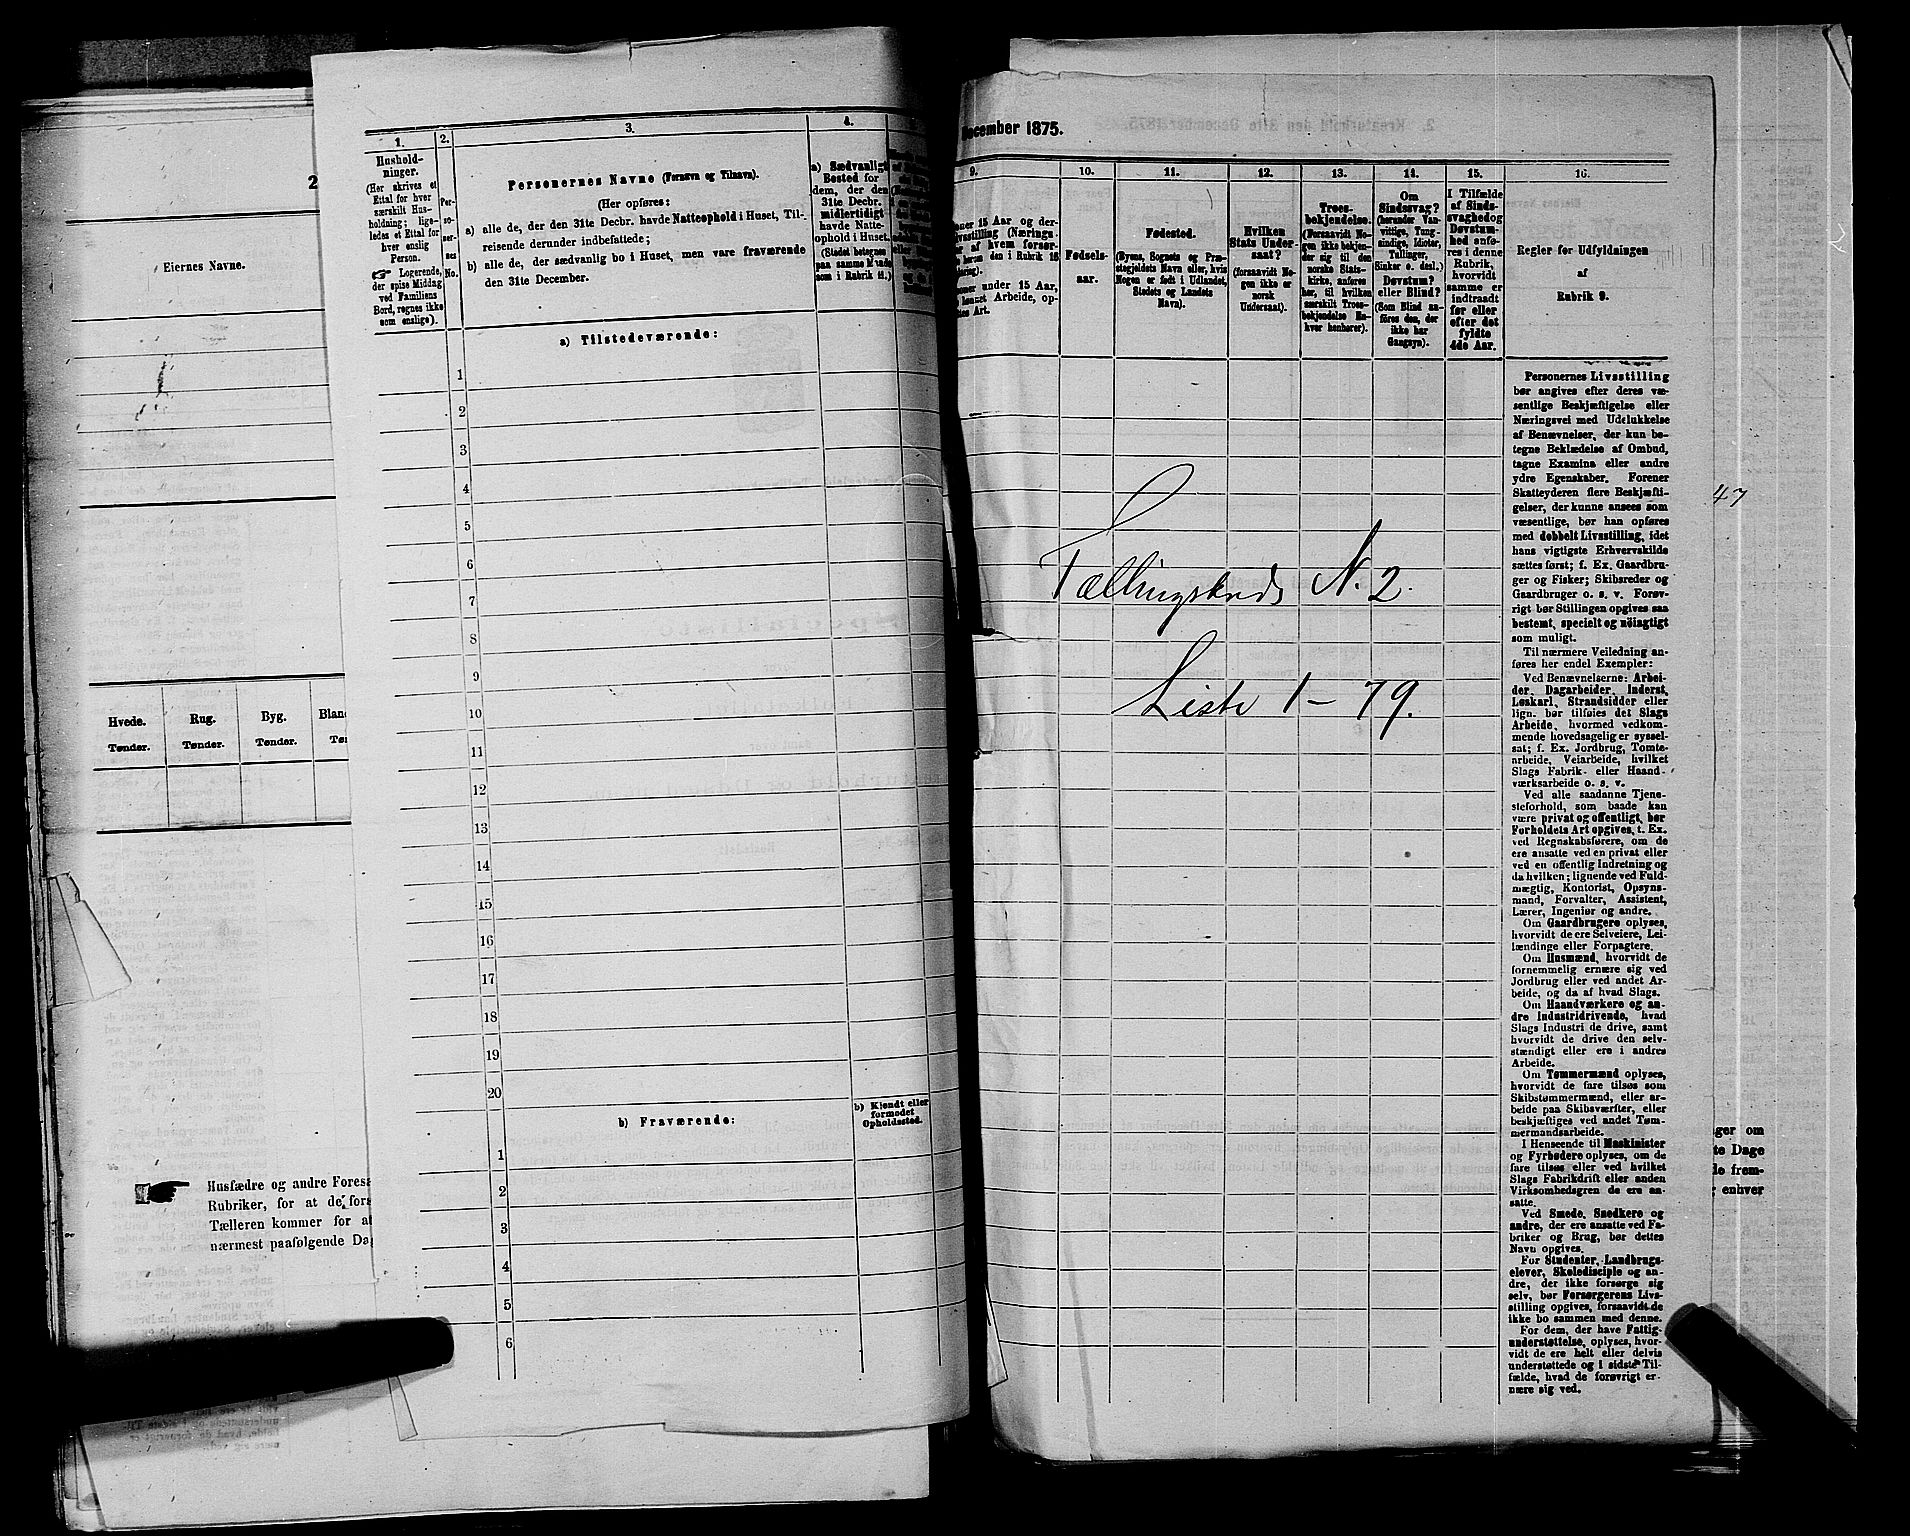 2
Eiernes Navne.
Hvede.
Rug.
Byg.
Tønder.
Tønder.
Tønder.
Husfædre og andre
Rubriker, for at de
Tælleren kommer for at
nærmest paafølgende
1.
2.
3.
4.
Hushold-
ninger.
(Her skrives et
Ettal for hver
særskilt Hus-
holdning; lige-
ledes et Ettal for
hver enslig
Person.
☞ Logerende,
der spise Middag
ved Familiens
Bord, regnes ikke
som enslige).
Per-
so-
ner-
nes
No.
Personernes Navne (Fornavn og Tilnavn).
(Her opføres:
a) alle de, der den 31te Decbr. havde Natteophold i Huset, Til-
reisende derunder indbefattede;
b) alle de, der sædvanlig bo i Huset, men vare fraværende
den 31te December.
a) Sædvanligt
Bosted for
dem, der den
31te Decbr.
midlertidigt
havde Natte-
ophold i Huset.
(Stedet betegnes
paa samme Maade
som i Rubrik 11.)
a) Tilstedeværende:
1
2
3
4
5
6
7
8
9
10
11
12
13
14
15
16
17
18
19
20
b) Fraværende:
b) Kjendt eller
formodet
Opholdssted.
1
2
3
4
5
6
December 1875.
9.
10.
11.
12.
13.
14.
15.
16.
15 Aar og der-
(Nærings-
af hvem forsør-
den i Rubrik 16
under 15 Aar,
Arbeide, op-
Art.
Fødsels-
aar.
Fødested.
(Byens, Sognets og Præ-
stegjeldets Navn eller, hvis
Nogen er født i Udlandet,
Stedets og Landets
Navn).
Hvilken
Stats Under-
saat?
(forsaavidt No-
gen ikke er
norsk
Undersaat).
Troes-
bekjendelse.
(Forsaavidt No-
gen ikke bekjen-
der sig til den
norske Stats-
kirke, anføres
her, til hvilken
særskilt Troes-
bekjendelse En-
hver henhører).
Om
Sindssvag?
(herunder Van-
vittige, Tung-
sindige, Idioter,
Tullinger,
Sinker o. desl.)
Døvstum?
eller Blind?
(Som Blind an-
føres den, der
ikke har
Gangsyn).
I Tilfælde
af Sinds-
svaghed og
Døvstum-
hed anfø-
res i denne
Rubrik,
hvorvidt
samme er
indtraadt
før eller
efter det
fyldte
4de Aar.
Regler for Udfyldningen
af
Rubrik 9.
Tællingskreds N. 2.
Liste 1 – 79.
Personernes Livsstilling
bør angives efter deres væ-
sentlige Beskjæftigelse eller
Næringsvei med Udelukkelse
af Benævnelser, der kun be-
tegne Beklædelse af Ombud,
tagne Examina eller andre
ydre Egenskaber. Forener
Skatteyderen flere Beskjæfti-
gelser, der kunne ansees som
væsentlige, bør han opføres
med dobbelt Livsstilling, idet
hans vigtigste Erhvervskilde
sættes først; f. Ex. Gaardbru-
ger og Fisker; Skibsreder og
Gaardbruger o. s. v. Forøv-
rigt bør Stillingen opgives saa
bestemt, specielt og nöiagtigt
som muligt.
Til nærmere Veiledning an-
føres her endel Exempler:
Ved Benævnelserne: Arbei-
der, Dagarbeider, Inderst,
Løskarl, Strandsidder eller
lign. bør tilføies det Slags
Arbeide, hvormed vedkom-
mende hovedsagelig er syssel-
sat; f. Ex. Jordbrug, Tomte-
arbeide, Veiarbeide, hvilket
Slags Fabrik- eller Haand-
værksarbeide o. s. v.
Ved alle saadanne Tjene-
steforhold, som baade kan
være privat og offentligt, bør
Forholdets Art opgives, t. Ex.
ved Regnskabsførere, om de
ere ansatte ved en privat eller
ved en offentlig Indretning og
da hvilken; lignende ved Fuld-
mægtig, Kontorist, Opsyns-
mand, Forvalter, Assistent,
Lærer, Ingeniør og andre.
Om Gaardbrugere oplyses,
hvorvidt de ere Selveiere, Lei-
lændinge eller Forpagtere.
Om Husmænd, hvorvidt de
fornemmelig ernære sig ved
Jordbrug eller ved andet Ar-
beide, og da af hvad Slags.
Om Haandværkere og an-
dre Industridrivende, hvad
Slags Industri de drive, samt
hvorvidt de drive den selv-
stændigt eller ere i andres
Arbeide.
Om Tømmermænd oplyses,
hvorvidt de fare tilsøs som
Skibstømmermænd, eller ar-
beide paa Skibsværfter, eller
beskjæftiges ved andet Tøm-
mermandsarbeide.
I Henseende til Maskinister
og Fyrbødere oplyses, om de
fare tilsøs eller ved hvilket
Slags Fabrikdrift eller anden
Virksomhedsgren de ere an-
satte.
Ved Smede, Snedkere og
andre, der ere ansatte ved Fa-
briker og Brug, bør dettes
Navn opgives.
For Studenter, Landbrugs-
elever, Skoledisciple og an-
dre, der ikke forsørge sig
selv, bør Forsørgerens Livs-
stilling opgives, forsaavidt de
ikke bo sammen med denne.
For dem, der have Fattig-
understøttelse, oplyses, hvor-
vidt de ere helt eller delvis
understøttede og i sidste Til-
fælde, hvad de forøvrigt er-
nære sig ved.
47
ger om
te Dage
de frem-
enhver